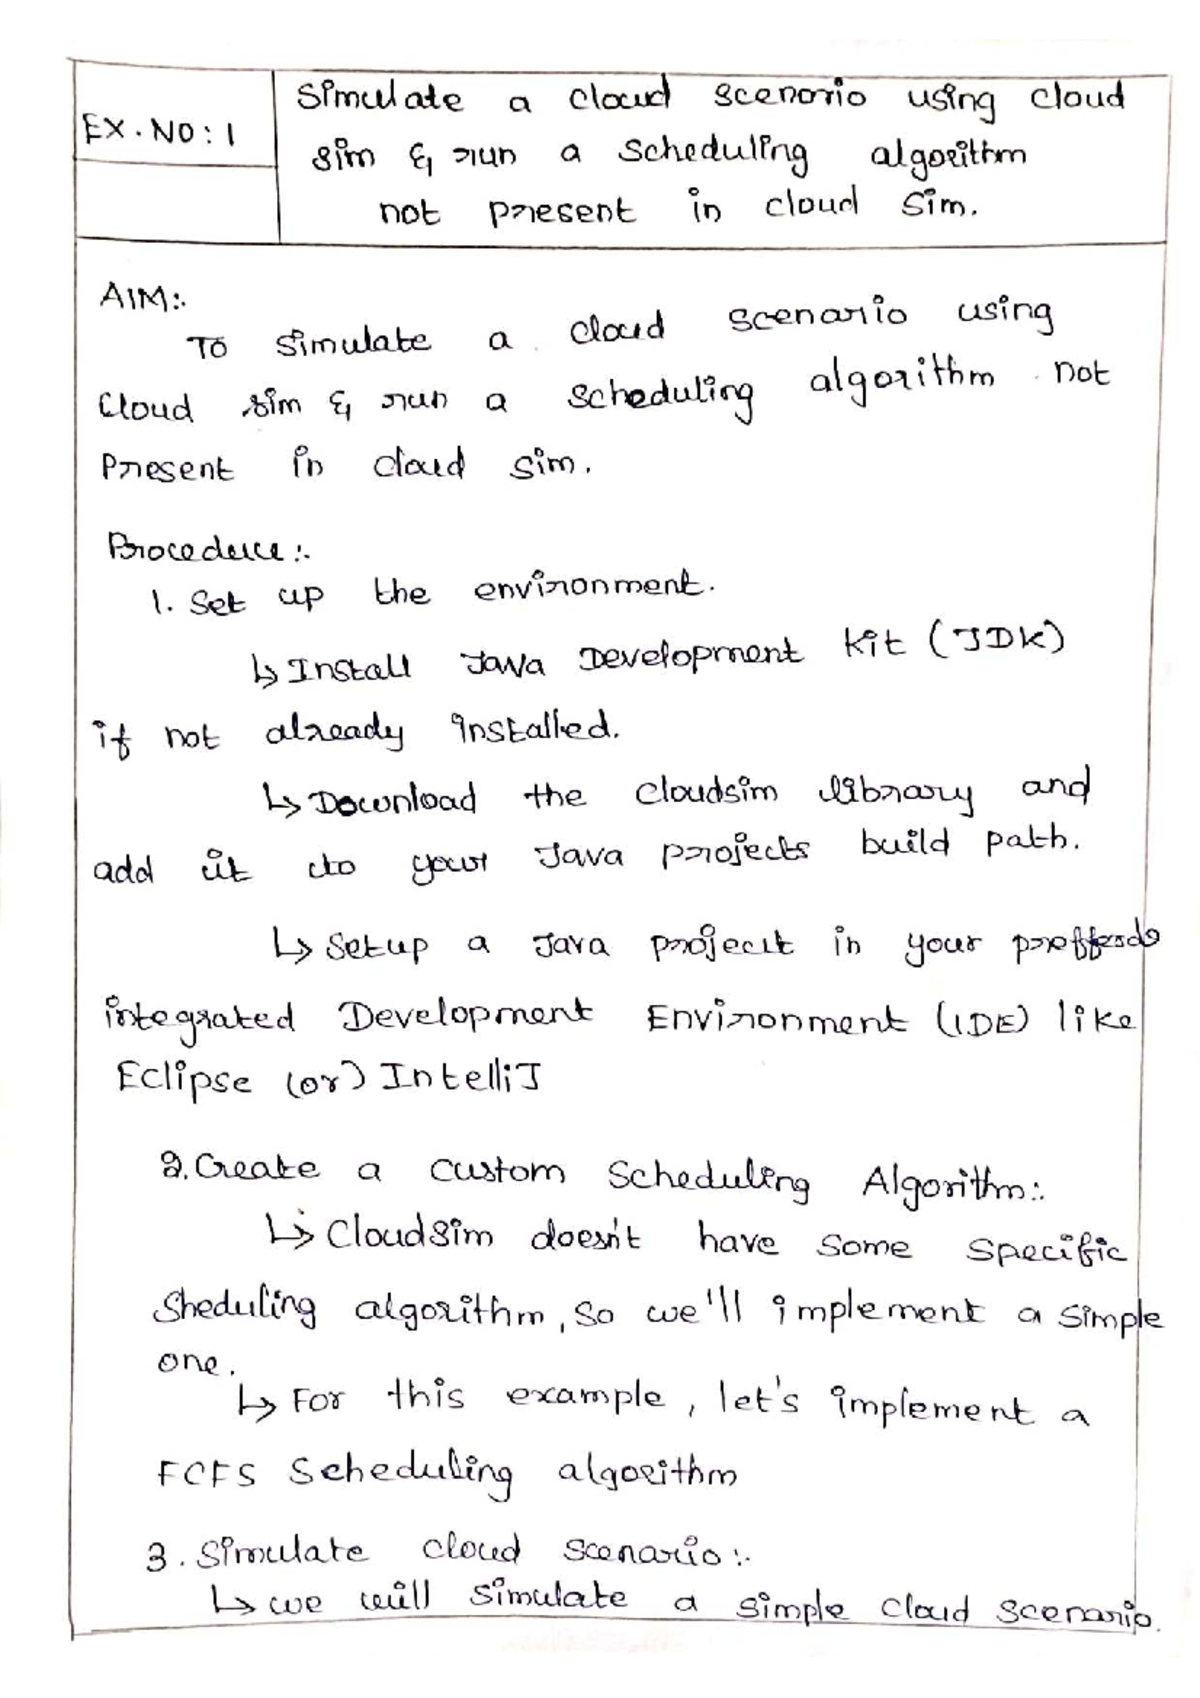 EX. NO: 1
Simulate a cloud scenario using cloud
sim & run a scheduling algorithm
not present in cloud sim.
AIM:.
To simulate a cloud scenario using
Cloud sim & run a scheduling algorithm not
Present in cloud sim.
Procedure:.
1. Set up the environment.
↳ Install Java Development kit (JDK)
if not already installed.
↳ Download the cloudsim library and
add it to your Java projects build path.
↳ Setup a Java project in your
integrated Development Environment (IDE) like
Eclipse (or) IntelliJ
2. Create a custom Scheduling Algorithm:.
↳ Cloudsim doesn't have some specific
Sheduling algorithm, so we'll implement a simple
one.
↳ For this example, let's implement a
FCFS Scheduling algorithm
3. Simulate cloud scenario:.
↳ we will simulate a simple cloud scenario.